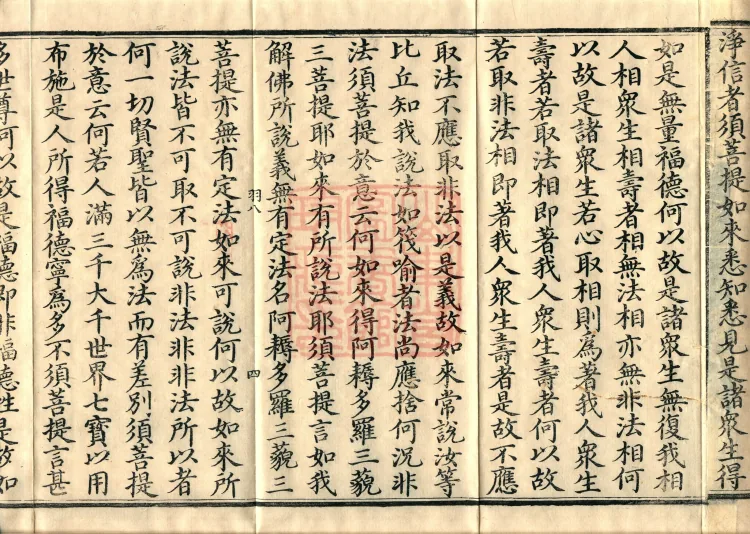 淨信者須菩提如來悉知悉見是諸衆生得
如是無量福德何以故是諸衆生無復我相
人相衆生相壽者相無法相亦無非法相何
以故是諸衆生若心取相則爲著我人衆生
壽者若取法相即著我人衆生壽者何以故
若取非法相即著我人衆生壽者是故不應
取法不應取非法以是義故如來常說汝等
比丘知我說法如筏喻者法尚應捨何況非
法須菩提於意云何如來得阿耨多羅三藐
三菩提耶如來有所說法耶須菩提言如我
解佛所說義無有定法名阿耨多羅三藐三
羽八 四
菩提亦無有定法如來可說何以故如來所
說法皆不可取不可說非法非非法所以者
何一切賢聖皆以無爲法而有差別須菩提
於意云何若人滿三千大千世界七寶以用
布施是人所得福德寧爲多不須菩提言甚
多世尊何以故是福德即非福德性是故如